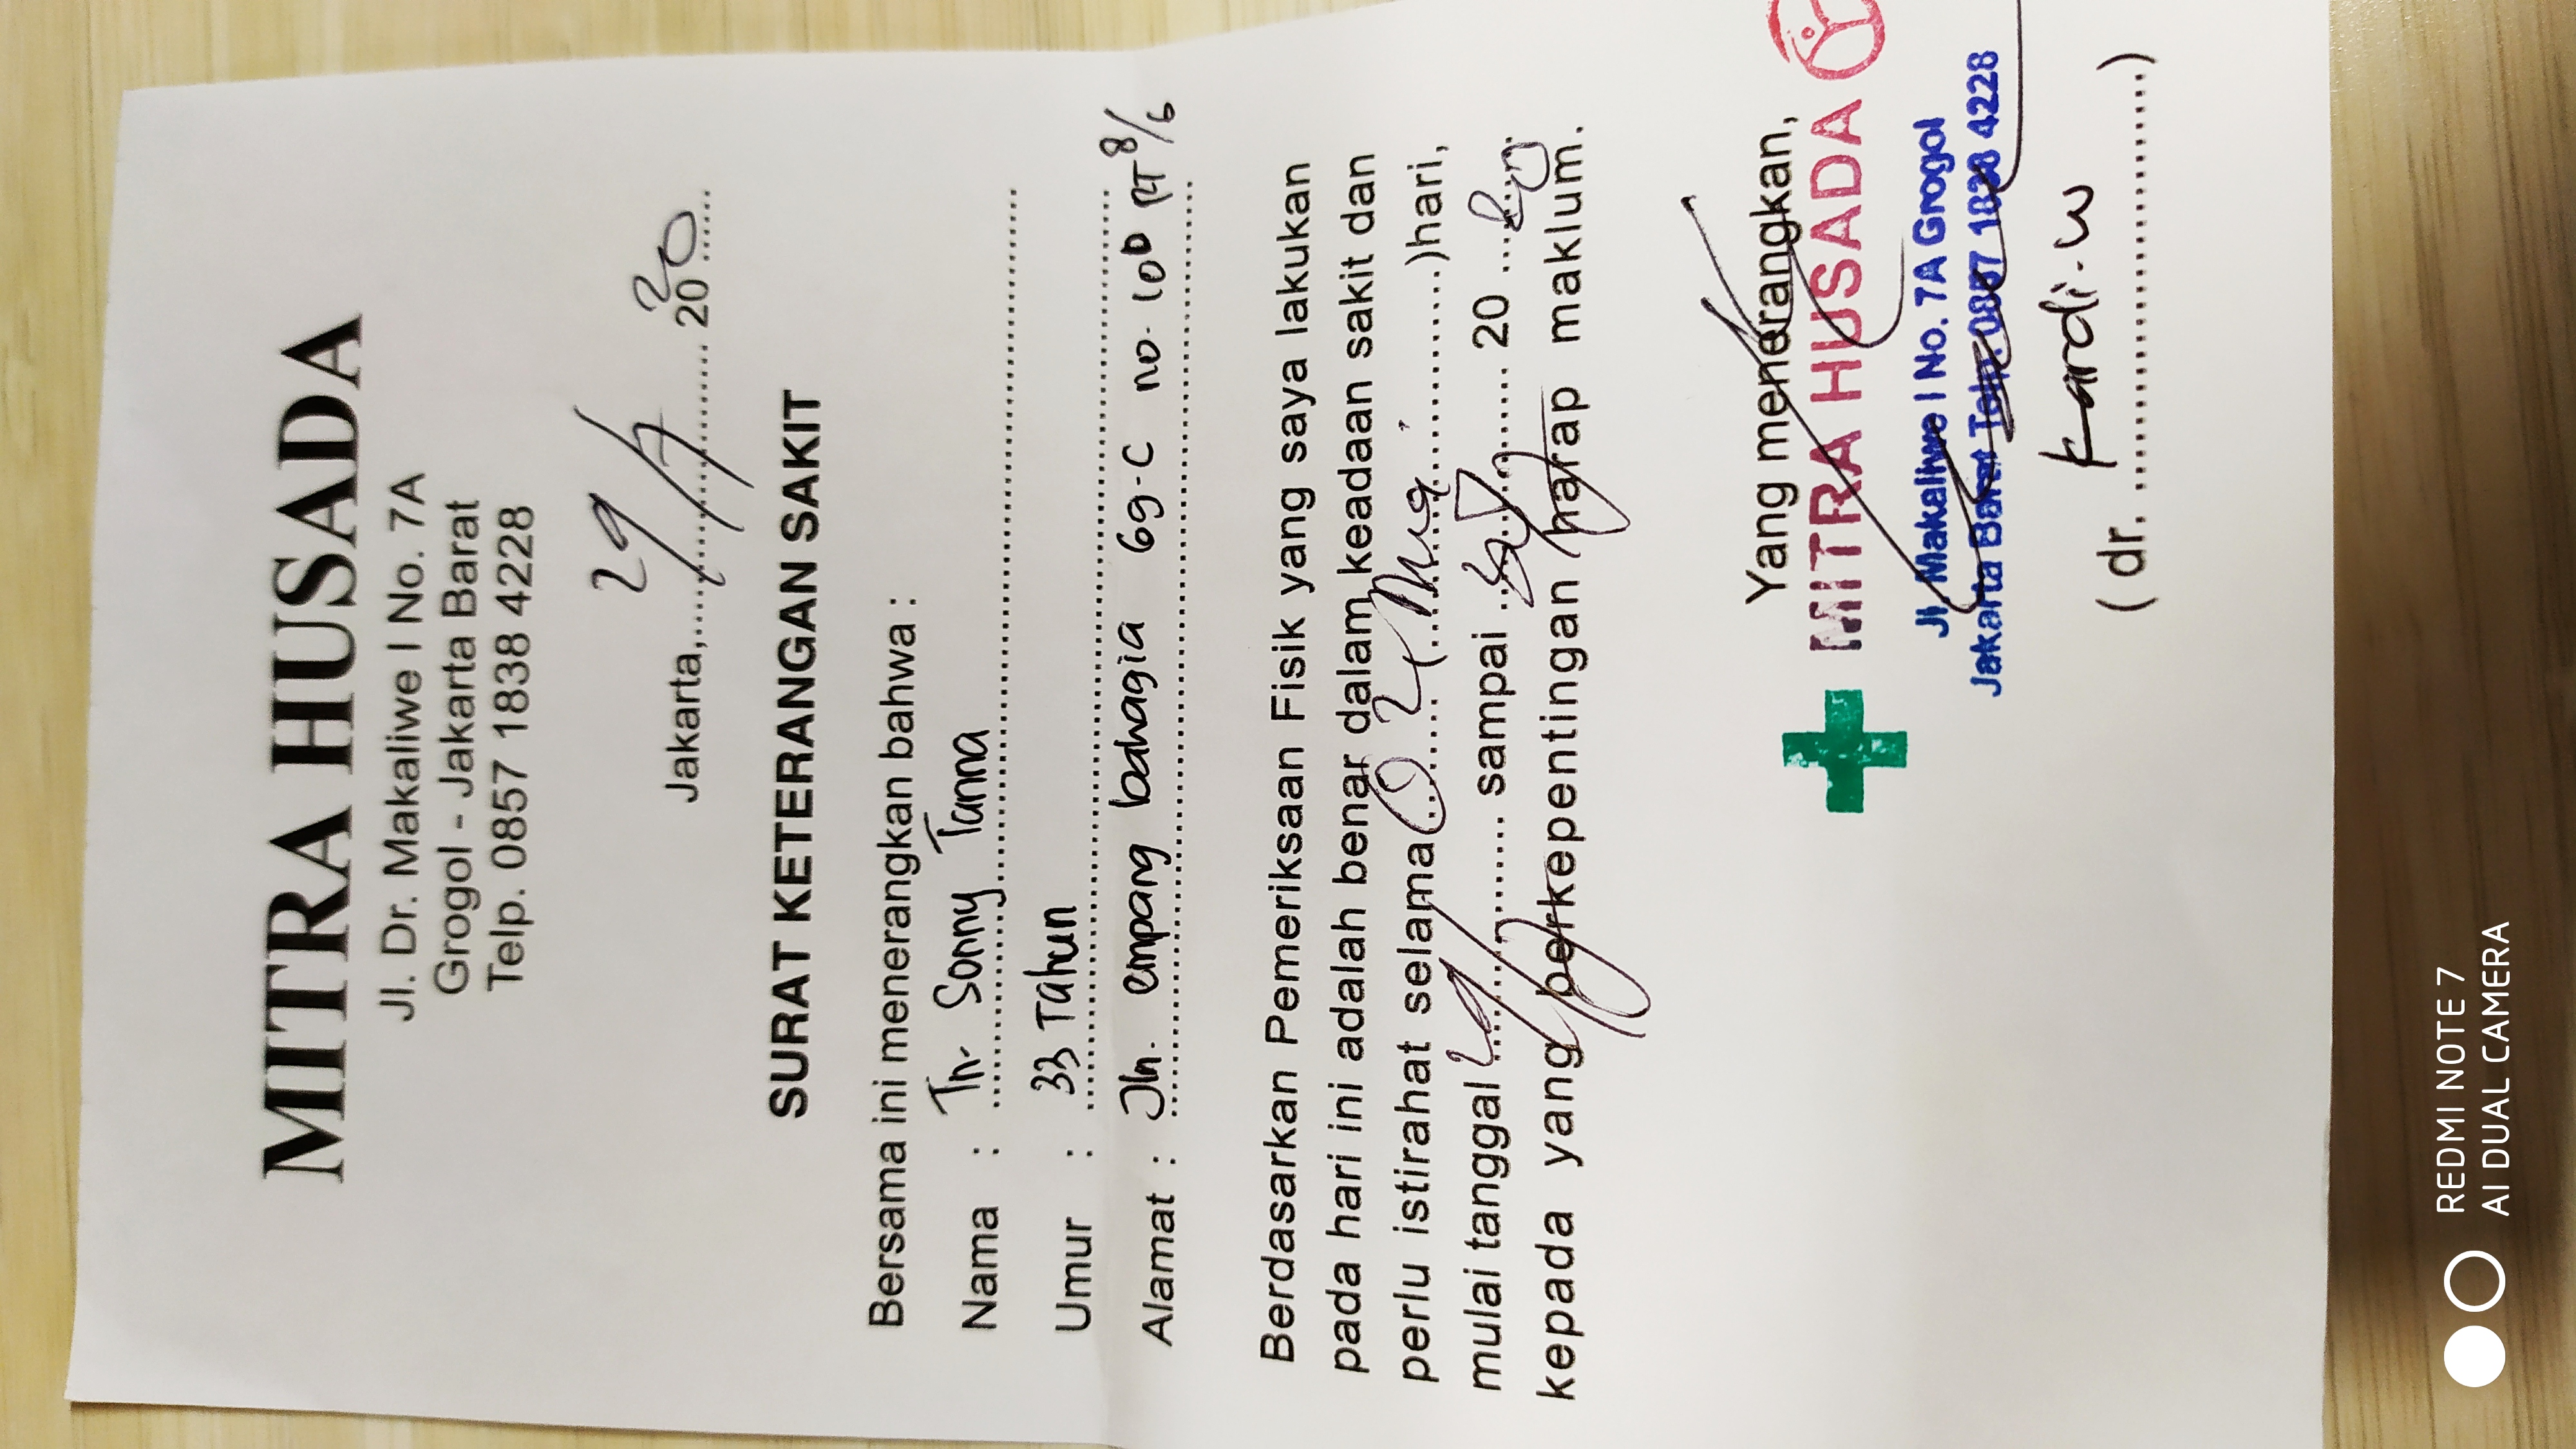 MITRA HUSADA
Jl. Dr. Makaliwe I No. 7A
Grogol - Jakarta Barat
Telp. 0857 1838 4228
Jakarta, 29/7 2020
SURAT KETERANGAN SAKIT
Bersama ini menerangkan bahwa :
Nama : Tn. Sonny Tanna
Umur : 33 Tahun
Alamat : Jln. empang bahagia 6g-C no. 10D RT 8/6
Berdasarkan Pemeriksaan Fisik yang saya lakukan
pada hari ini adalah benar dalam keadaan sakit dan
perlu istirahat selama (...) hari,
mulai tanggal 29/7 sampai 20 20
kepada yang berkepentingan harap maklum.
Yang menerangkan,
MITRA HUSADA
Jl. Makaliwe I No. 7A Grogol
Jakarta Barat Telp. 0857 1838 4228
( dr. Kardi.w )
REDMI NOTE 7
AI DUAL CAMERA